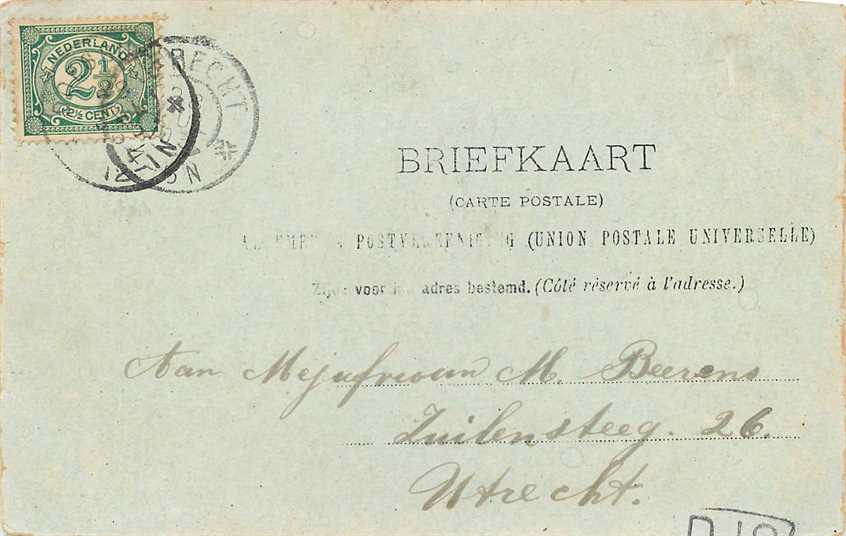 NEDERLAND
2½
2½ CENT
UTRECHT
BRIEFKAART
(CARTE POSTALE)
POSTVEREENIGING (UNION POSTALE UNIVERSELLE)
Zijde voor het adres bestemd. (Côté réservé à l'adresse.)
Aan Mejufrouw M. Beerens
Zuilensteeg. 26.
Utrecht.